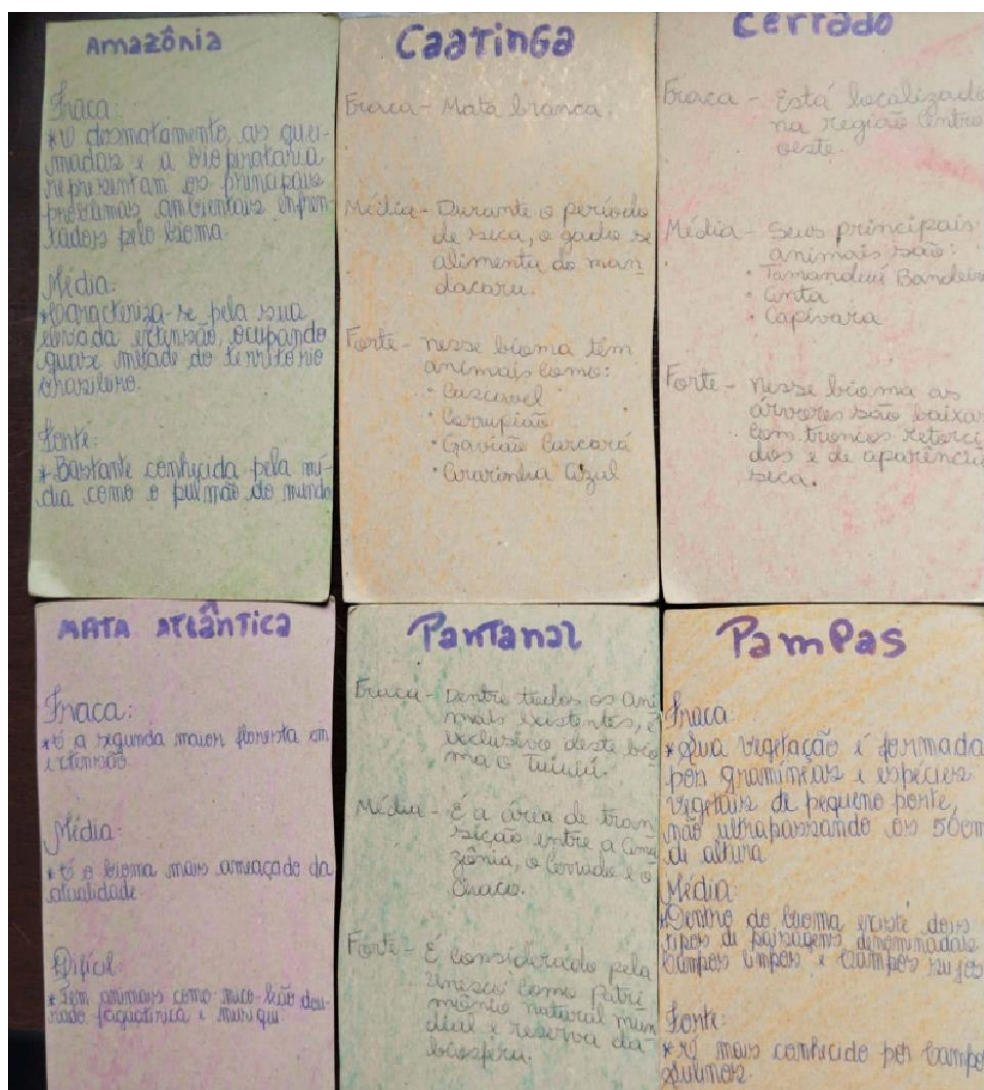 Amazônia
Fraca:
* O desmatamento, as quei-
madas e a biopirataria
representam os principais
problemas ambientais enfren-
tados pelo bioma.
Média:
* Caracteriza-se pela sua
elevada extensão, ocupando
quase metade do território
brasileiro.
Forte:
* Bastante conhecida pela mí-
dia como o pulmão do mundo
Caatinga
Fraca - Mata branca.
Média - Durante o período
de seca, o gado se
alimenta do man
dacaru.
Forte - nesse bioma têm
animais como:
• Cascavel
• Corrupião
• Gavião Carcará
• Ararinha Azul
Cerrado
Fraca - Está localizado
na região Centro
oeste.
Média - Seus principais
animais são:
• Tamanduá Bandeir
• Anta
• Capivara
Forte - Nesse bioma as
árvores são baixas
com troncos retorci
dos e de aparência
seca.
MATA ATLÂNTICA
Fraca:
* É a segunda maior floresta em
extensão
Média:
* É o bioma mais ameaçado da
atualidade
Difícil:
* Tem animais como mico-leão dou-
rado jaguatirica e muriqui
Pantanal
Fraca - Dentre todos os ani
mais existentes, é
exclusivo deste bio
ma o Tuiuiú.
Média - É a área de tran
sição entre a Ama
zônia, o Cerrado e o
Chaco.
Forte - É considerado pela
Unesco como patri
mônio natural mun
dial e reserva da
biosfera.
Pampas
Fraca:
* Sua vegetação é formada
por gramíneas e espécies
vegetais de pequeno porte,
não ultrapassando os 50cm
de altura
Média:
* Dentro do bioma existe dois
tipos de paisagens denominadas
Campos limpos e Campos sujos
Forte:
mais conhecido por Campo
Sulinos.